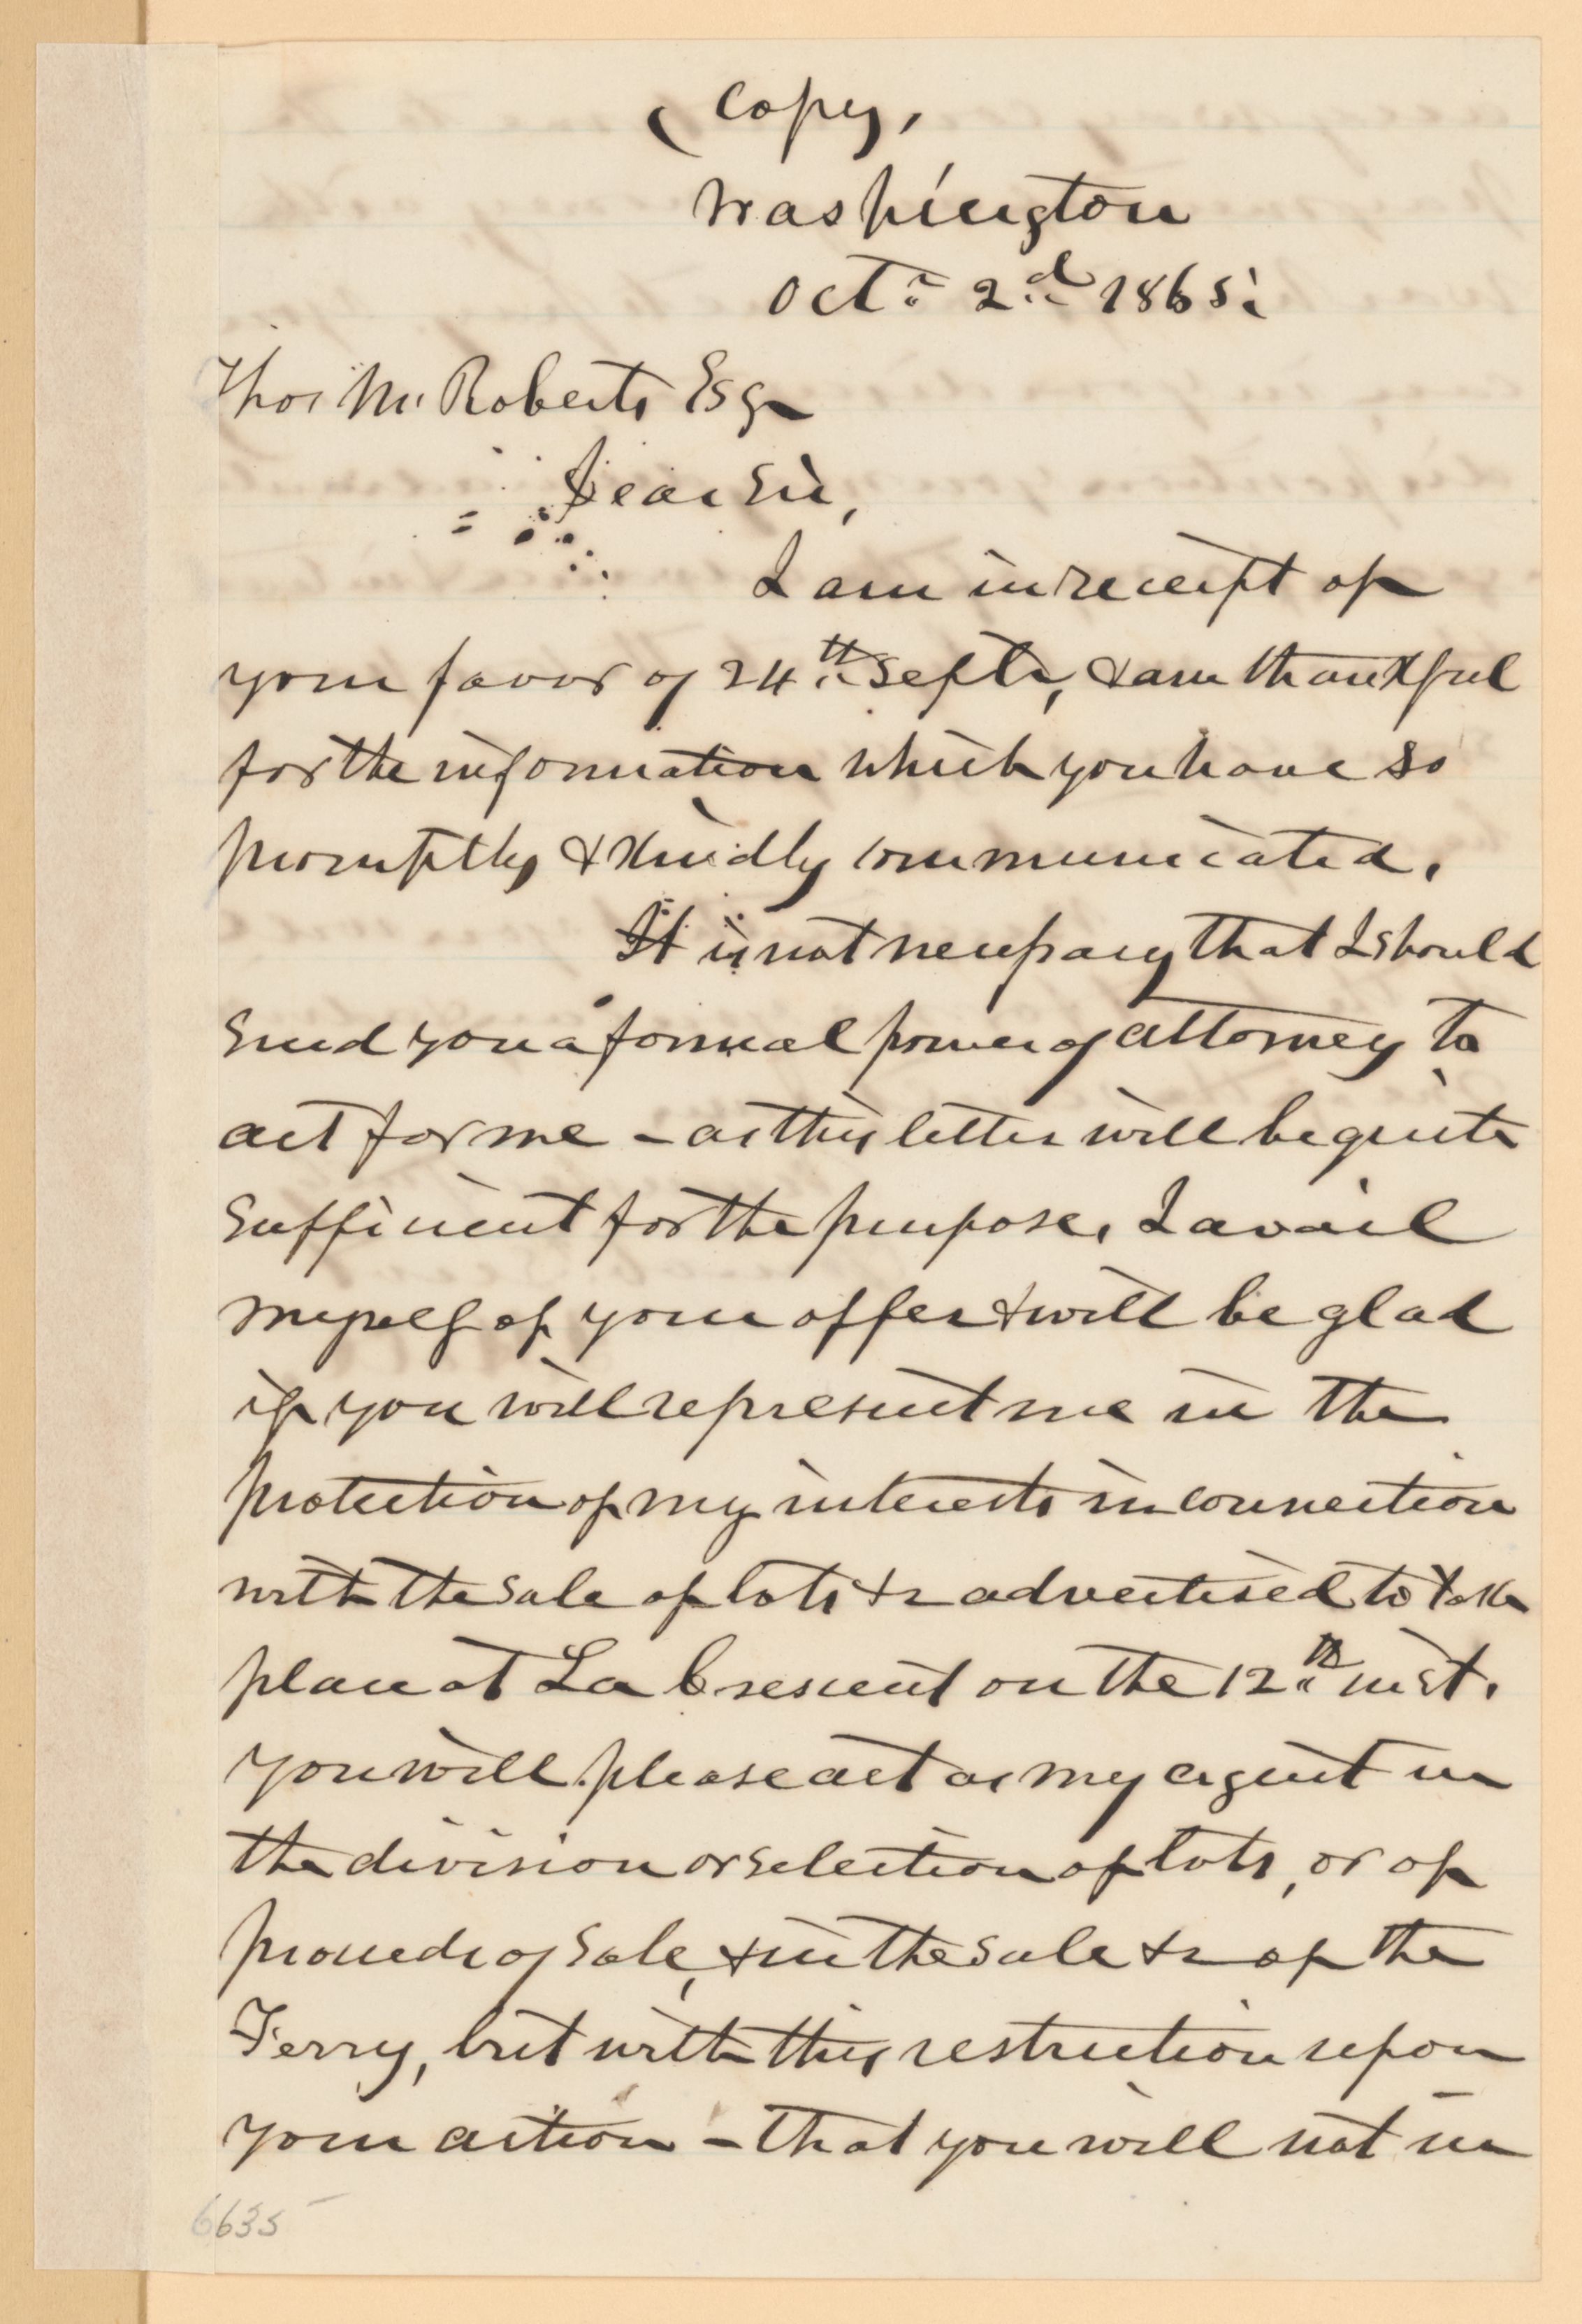 (Copy,
Washington
Oct: 2d 1865:
Thos McRoberts Esq
Dear Sir,
I am in receipt of
your favor of 24th Septr, & am thankful
for the information which you have so
promptly & kindly communicated.
It is not necessary that I should
send you a formal power of attorney to
act for me - as this letter will be quite
sufficient for the purpose. I avail
myself of your offer & will be glad
if you will represent me in the
protection of my interests in connection
with the sale of lots &c advertised to take
place at La Crescent on the 12th inst.
You will please act as my agent in
the division or selection of lots, or of
proceeds of sale, & in the sale &c of the
Ferry, but with this restriction upon
your action - that you will not in
6635